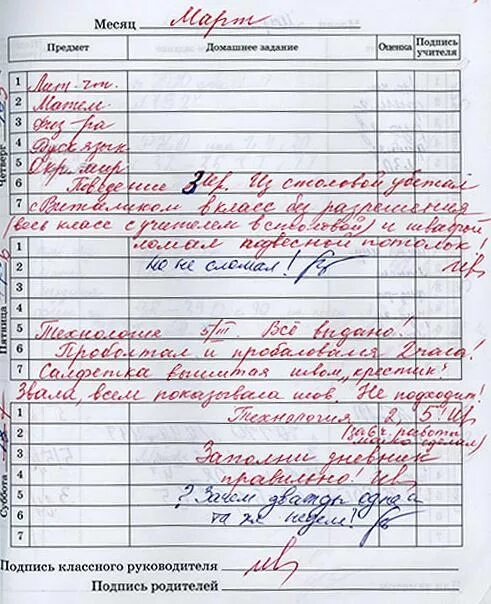 Месяц Март
Предмет Домашнее задание Оценка Подпись учителя
Четверг
1 Лит. чт.
2 Матем.
3 Физ-ра
4 Русск язык
5 Окр. мир.
6 Поведение 3 Из столовой убежал
7 с Виталиком в класс без разрешения
(весь класс с учителем в столовой) и шваброй
1 ломал подвесной потолок!
2 но не сломал!
3
4
Пятница
5 Технология 5/III. Всё выдано!
6 Проболтал и пробаловался 2 часа!
7 Салфетка вышитая швом „крестик".
Звала, всем показывала шов. Не подходит!
Суббота
1 Технология 2, 5!
2 работу
3 Заполни дневник
4 правильно!
5 ? Зачем дважды одна и
6 та же неделя!
7
Подпись классного руководителя
Подпись родителей